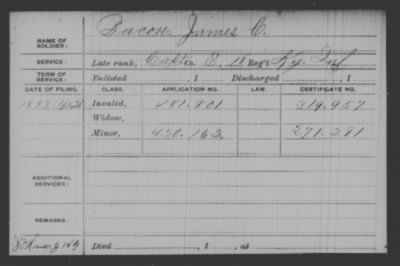 NAME OF SOLDIER: Bacon James C.
SERVICE: Late rank, Capt. Co. E, 18 Reg't Ky. Inf
TERM OF SERVICE: Enlisted , 1 Discharged , 1
DATE OF FILING. CLASS. APPLICATION NO. LAW. CERTIFICATE NO.
1883 Invalid, 481.801 319.957
Widow,
Minor, 420.162 271.281
ADDITIONAL SERVICES:
REMARKS:
Died , 1 , at